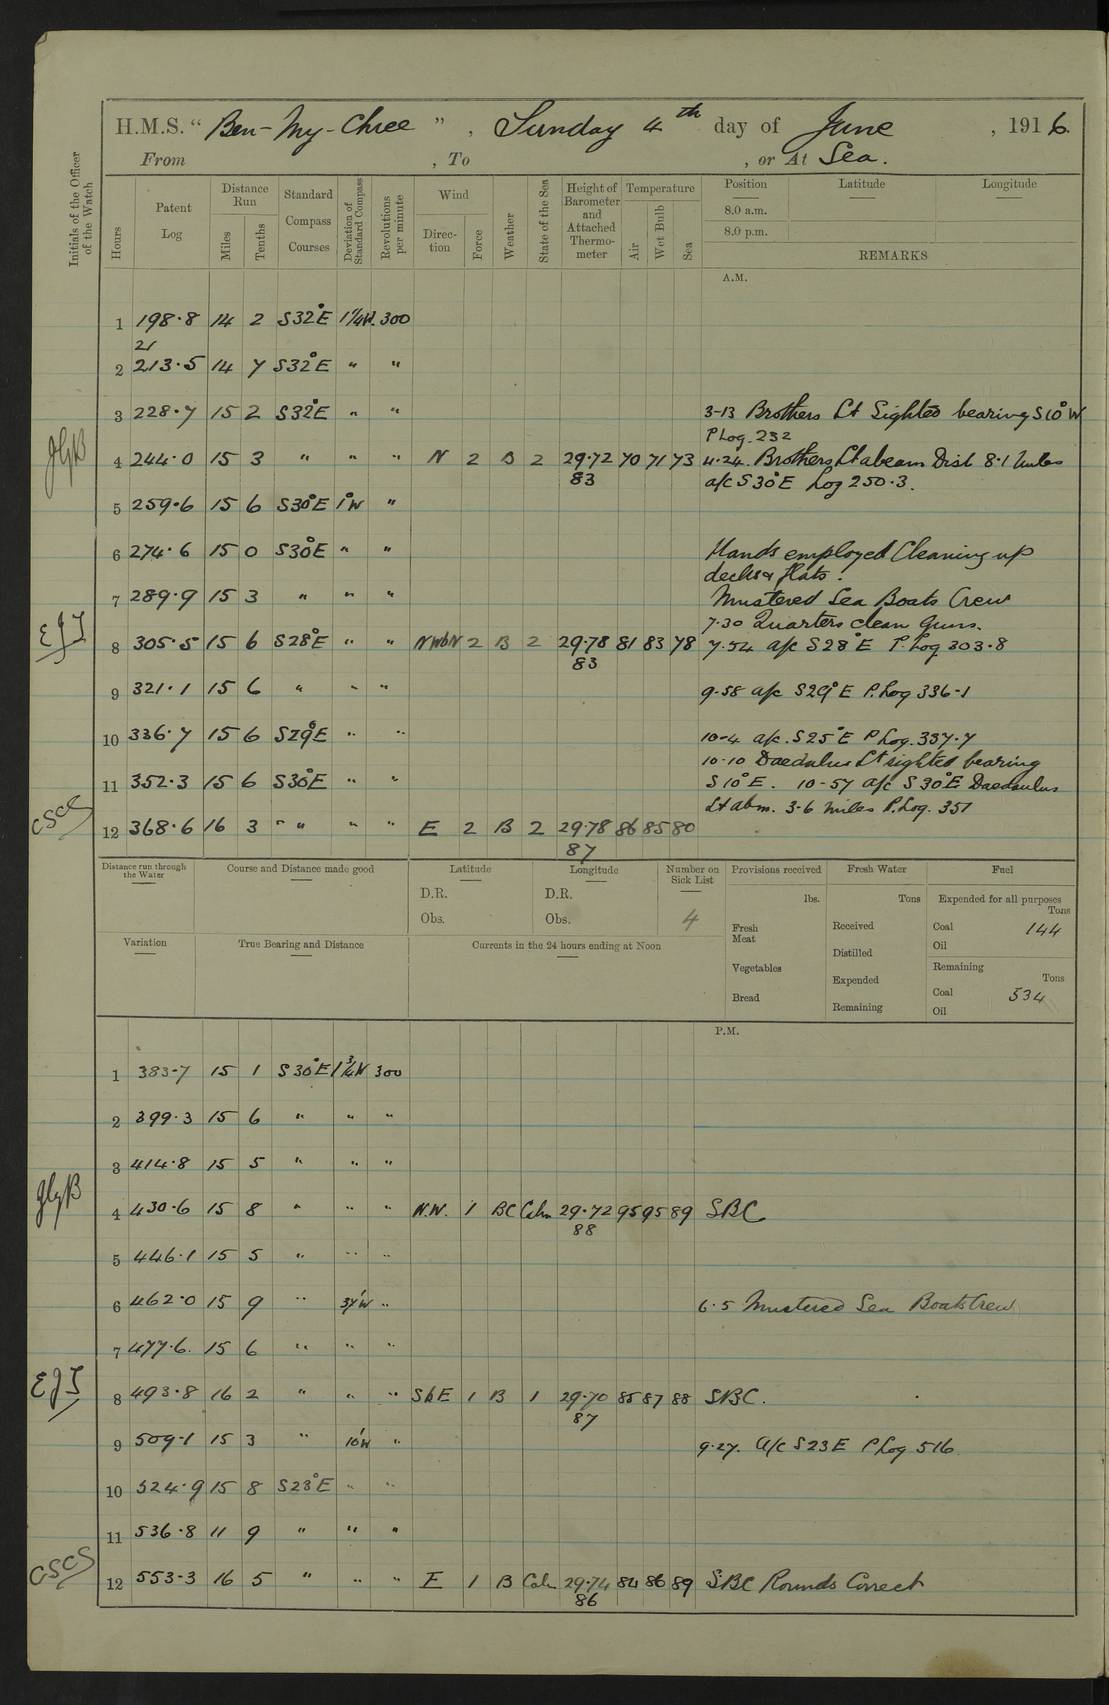 H.M.S. " Ben-My-Chree " , Sunday 4th day of June , 1916.
From , To , or At Sea.
Initials of the Officer of the Watch
Hours
Patent Log
Distance Run
Miles
Tenths
Standard Compass Courses
Deviation of Standard Compass
Revolutions per minute
Wind
Direction
Force
Weather
State of the Sea
Height of Barometer and Attached Thermometer
Temperature
Air
Wet Bulb
Sea
Position Latitude Longitude
8.0 a.m.
8.0 p.m.
REMARKS
A.M.
1 198·8 14 2 S32°E 1¼W. 300
21
2 213·5 14 7 S32°E " "
3 228·7 15 2 S32°E " " 3-13 Brothers Lt Sighted bearing S10°W
P Log. 232
4 244·0 15 3 " " " N 2 B 2 29·72 70 71 73 4·24. Brothers Lt abeam Dist 8·1 Miles
83 a/c S30°E Log 250·3.
5 259·6 15 6 S30°E 1°W "
6 274·6 15 0 S30°E " " Hands employed Cleaning up
decks & flats.
7 289·9 15 3 " " " Mustered Sea Boats Crew
EJT 7·30 Quarters clean Guns.
8 305·5 15 6 S28°E " " NWbN 2 B 2 29·78 81 83 78 7·54 a/c S28°E P. Log 303·8
83
9 321·1 15 6 " " " 9·58 a/c S29°E P. Log 336·1
10 336·7 15 6 S29°E " " 10-4 a/c. S25°E P Log. 337·7
10·10 Daedalus Lt sighted bearing
11 352·3 15 6 S30°E " " S10°E. 10-57 a/c S30°E Daedaulus
CSCS Lt abm. 3·6 miles P. Log. 351
12 368·6 16 3 " " " " E 2 B 2 29·78 86 85 80
87
Distance run through the Water
Course and Distance made good
Latitude
D.R.
Obs.
Longitude
D.R.
Obs.
Number on Sick List
4
Provisions received
lbs.
Fresh Meat
Vegetables
Bread
Fresh Water
Tons
Received
Distilled
Expended
Remaining
Fuel
Expended for all purposes
Tons
Coal 144
Oil
Remaining
Tons
Coal 534
Oil
Variation
True Bearing and Distance
Currents in the 24 hours ending at Noon
P.M.
1 383·7 15 1 S30°E 1¾W 300
2 399·3 15 6 " " "
3 414·8 15 5 " " "
4 430·6 15 8 " " " N.W. 1 BC Calm 29·72 95 95 89 SBC
88
5 446·1 15 5 " " "
6 462·0 15 9 " " 6·5 Mustered Sea Boats Crew
7 477·6. 15 6 " " "
EJT
8 493·8 16 2 " " " SbE 1 B 1 29·70 85 87 88 SBC.
87
9 509·1 15 3 " 10'W " 9·27. A/c S23E P Log 516
10 524·9 15 8 S23°E " "
11 536·8 11 9 " " "
CSCS
12 553·3 16 5 " " " E 1 B Calm 29·74 84 86 89 SBC Rounds Correct
86